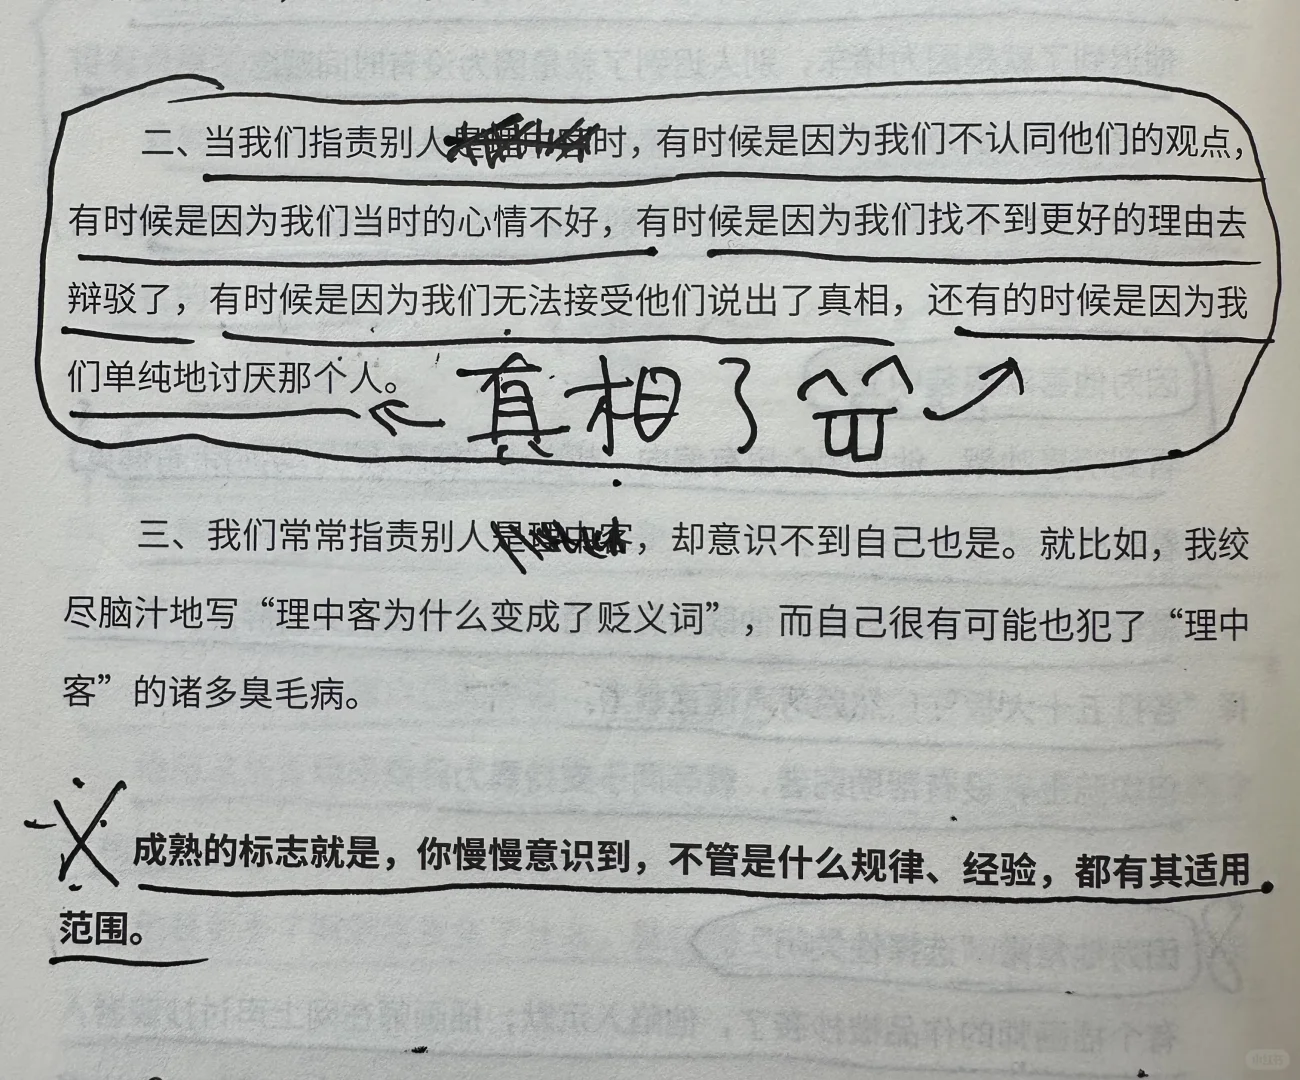 二、当我们指责别人时，有时候是因为我们不认同他们的观点，
有时候是因为我们当时的心情不好，有时候是因为我们找不到更好的理由去
辩驳了，有时候是因为我们无法接受他们说出了真相，还有的时候是因为我
们单纯地讨厌那个人。
真相了
三、我们常常指责别人是理中客，却意识不到自己也是。就比如，我绞
尽脑汁地写“理中客为什么变成了贬义词”，而自己很有可能也犯了“理中
客”的诸多臭毛病。
成熟的标志就是，你慢慢意识到，不管是什么规律、经验，都有其适用
范围。